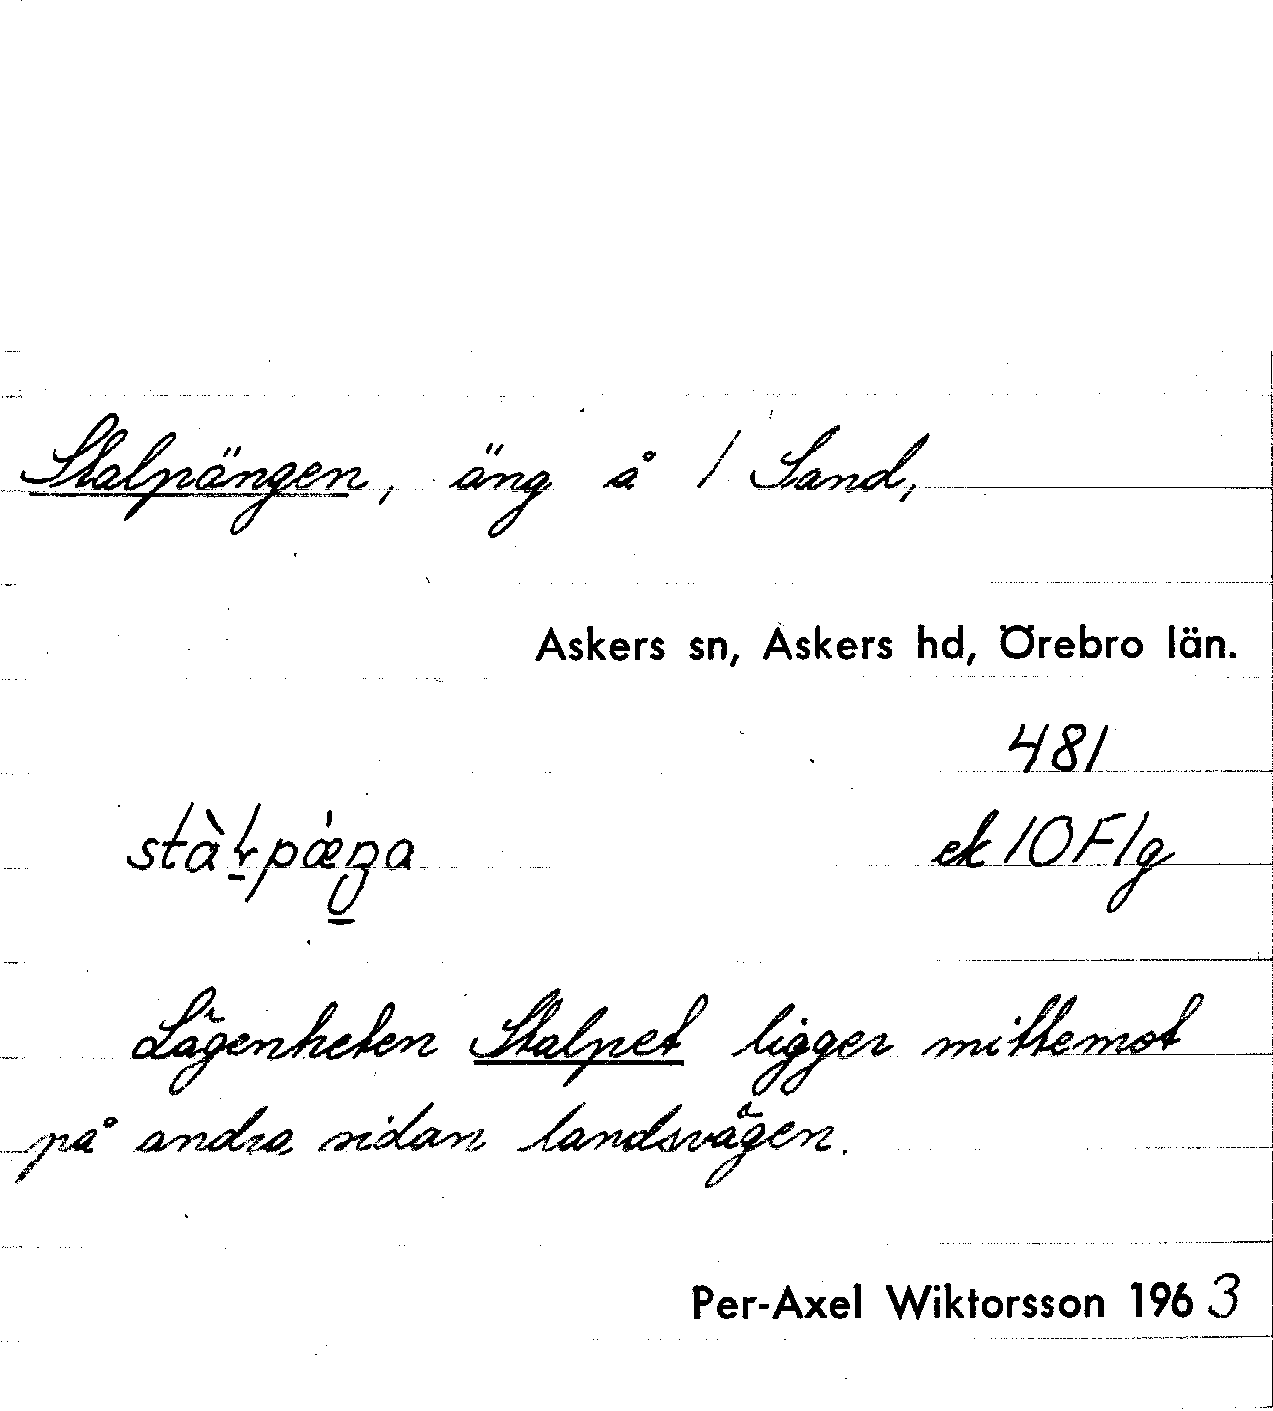 Stalpängen, äng å 1 Sand,
Askers sn, Askers hd, Örebro län.
481
ek 10F1g
Lägenheten Stalpet ligger mittemot
på andra sidan landsvägen.
Per-Axel Wiktorsson 1963